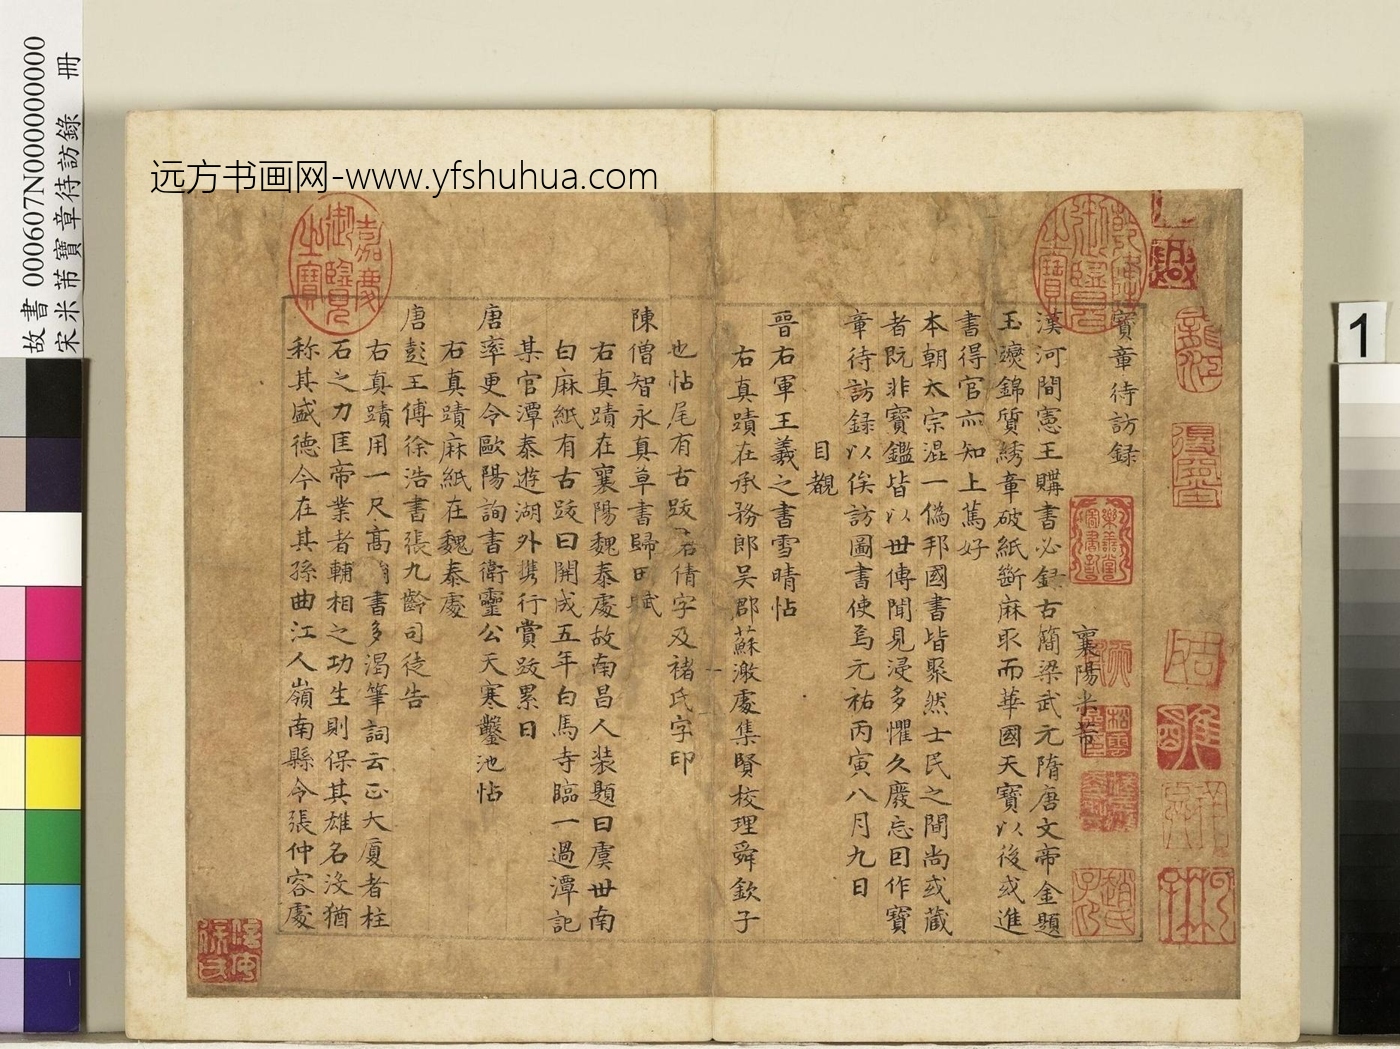 故書 000607N000000000
宋米芾寶章待訪錄 冊
远方书画网-www.yfshuhua.com
1
寶章待訪録
襄陽米芾
漢河間憲王購書必録古簡梁武元隋唐文帝金題
玉躞錦質綉章破紙斷麻取而華國天寶以後或進
書得官亦知上篤好
本朝太宗混一僞邦國書皆聚然士民之間尚或藏
者既非寶鑑皆以世傳聞見浸多懼久廢忘因作寶
章待訪録以俟訪圖書使焉元祐丙寅八月九日
目覩
晉右軍王羲之書雪晴帖
右真蹟在承務郎吴郡蘇澉處集賢校理舜欽子
也帖尾有古跋君倩字及褚氏字印
陳僧智永真草書歸田賦
右真蹟在襄陽魏泰處故南昌人装題曰虞世南
白麻紙有古跋曰開成五年白馬寺臨一過潭記
某官潭泰遊湖外携行賞跋累日
唐率更令歐陽詢書衛靈公天寒鑿池帖
右真蹟麻紙在魏泰處
唐彭王傅徐浩書張九齡司徒告
右真蹟用一尺高書多渴筆詞云正大厦者柱
石之力匡帝業者輔相之功生則保其雄名没猶
称其盛德今在其孫曲江人嶺南縣令張仲容處
嘉慶御覽之寶
乾隆御覽之寶